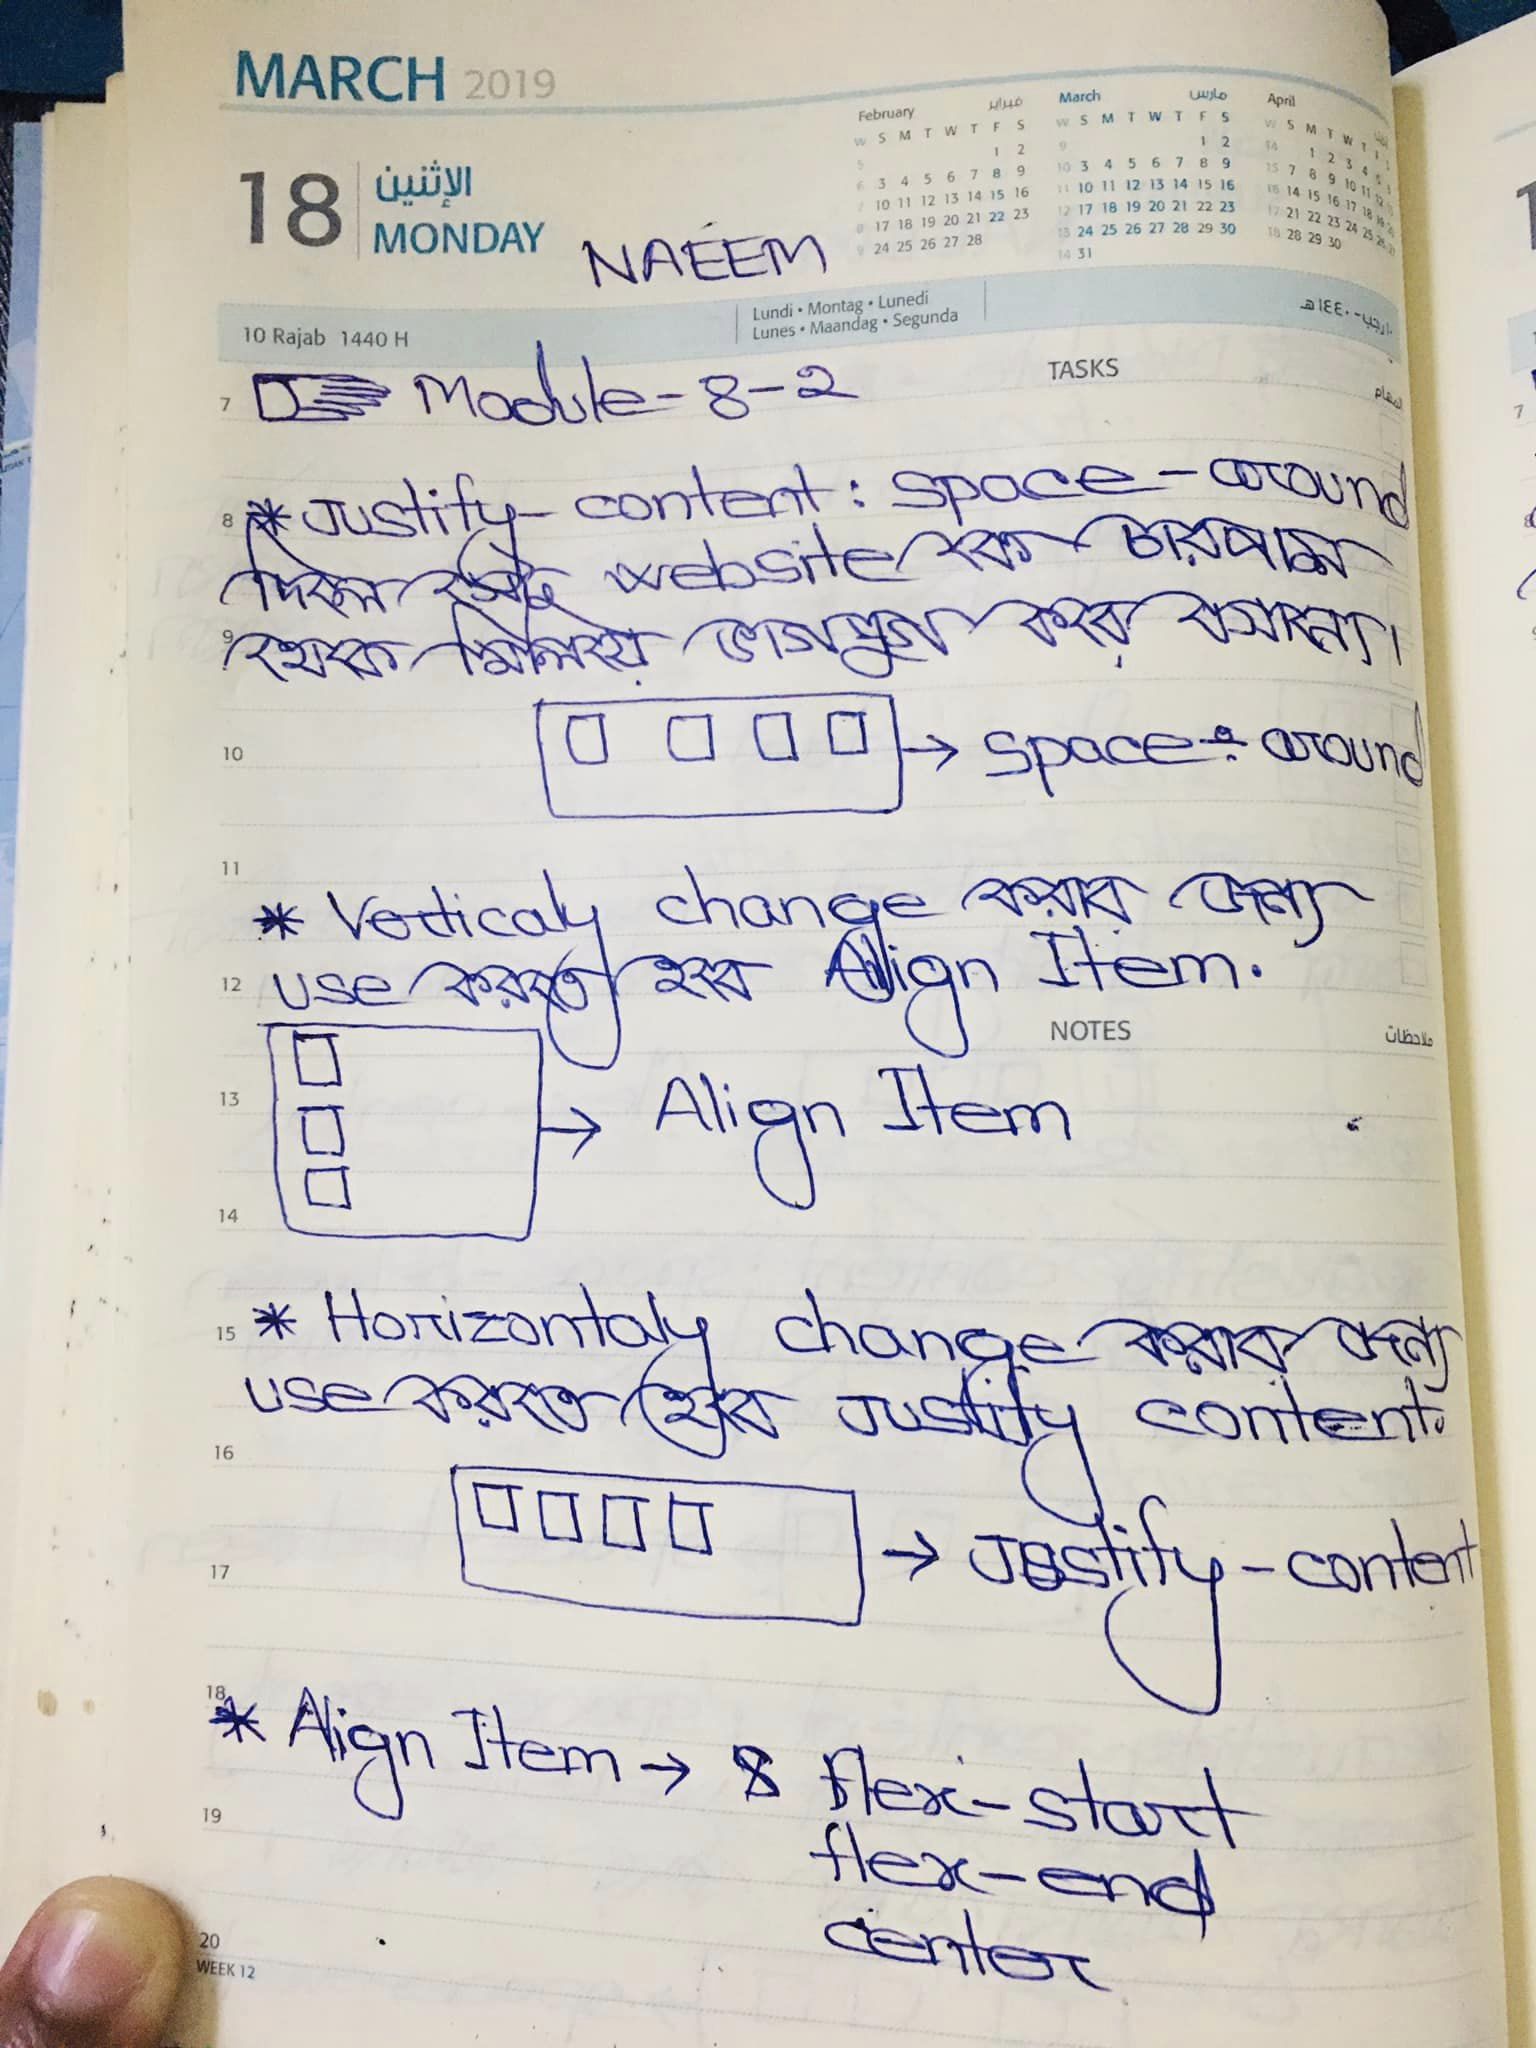 MARCH 2019
18 الإثنين
MONDAY
NAEEM
February فبراير
W S M T W T F S
5 1 2
6 3 4 5 6 7 8 9
7 10 11 12 13 14 15 16
8 17 18 19 20 21 22 23
9 24 25 26 27 28
March مارس
W S M T W T F S
9 1 2
10 3 4 5 6 7 8 9
11 10 11 12 13 14 15 16
12 17 18 19 20 21 22 23
13 24 25 26 27 28 29 30
14 31
April
W S M T W T F
14 1 2 3 4 5
15 7 8 9 10 11 12
16 14 15 16 17 18 19
17 21 22 23 24 25 26
18 28 29 30
10 Rajab 1440 H
Lundi • Montag • Lunedi
Lunes • Maandag • Segunda
١٠ رجب - ١٤٤٠ هـ
TASKS
المهام
7 Module-8-2
8 * Justify-content: space-around
দিলে website কে চারপাশ
9 থেকে মিলিয়ে ভাগ করে বসাবে।
10 → space-around
11
* Verticaly change করার জন্য
12 use করতে হবে Align Item.
NOTES ملاحظات
13 → Align Item
14
15 * Horizontaly change করার জন্য
use করতে হবে Justify content.
16
17 → Justify-content
18
* Align Item → flex-start
19 flex-end
center
20
WEEK 12